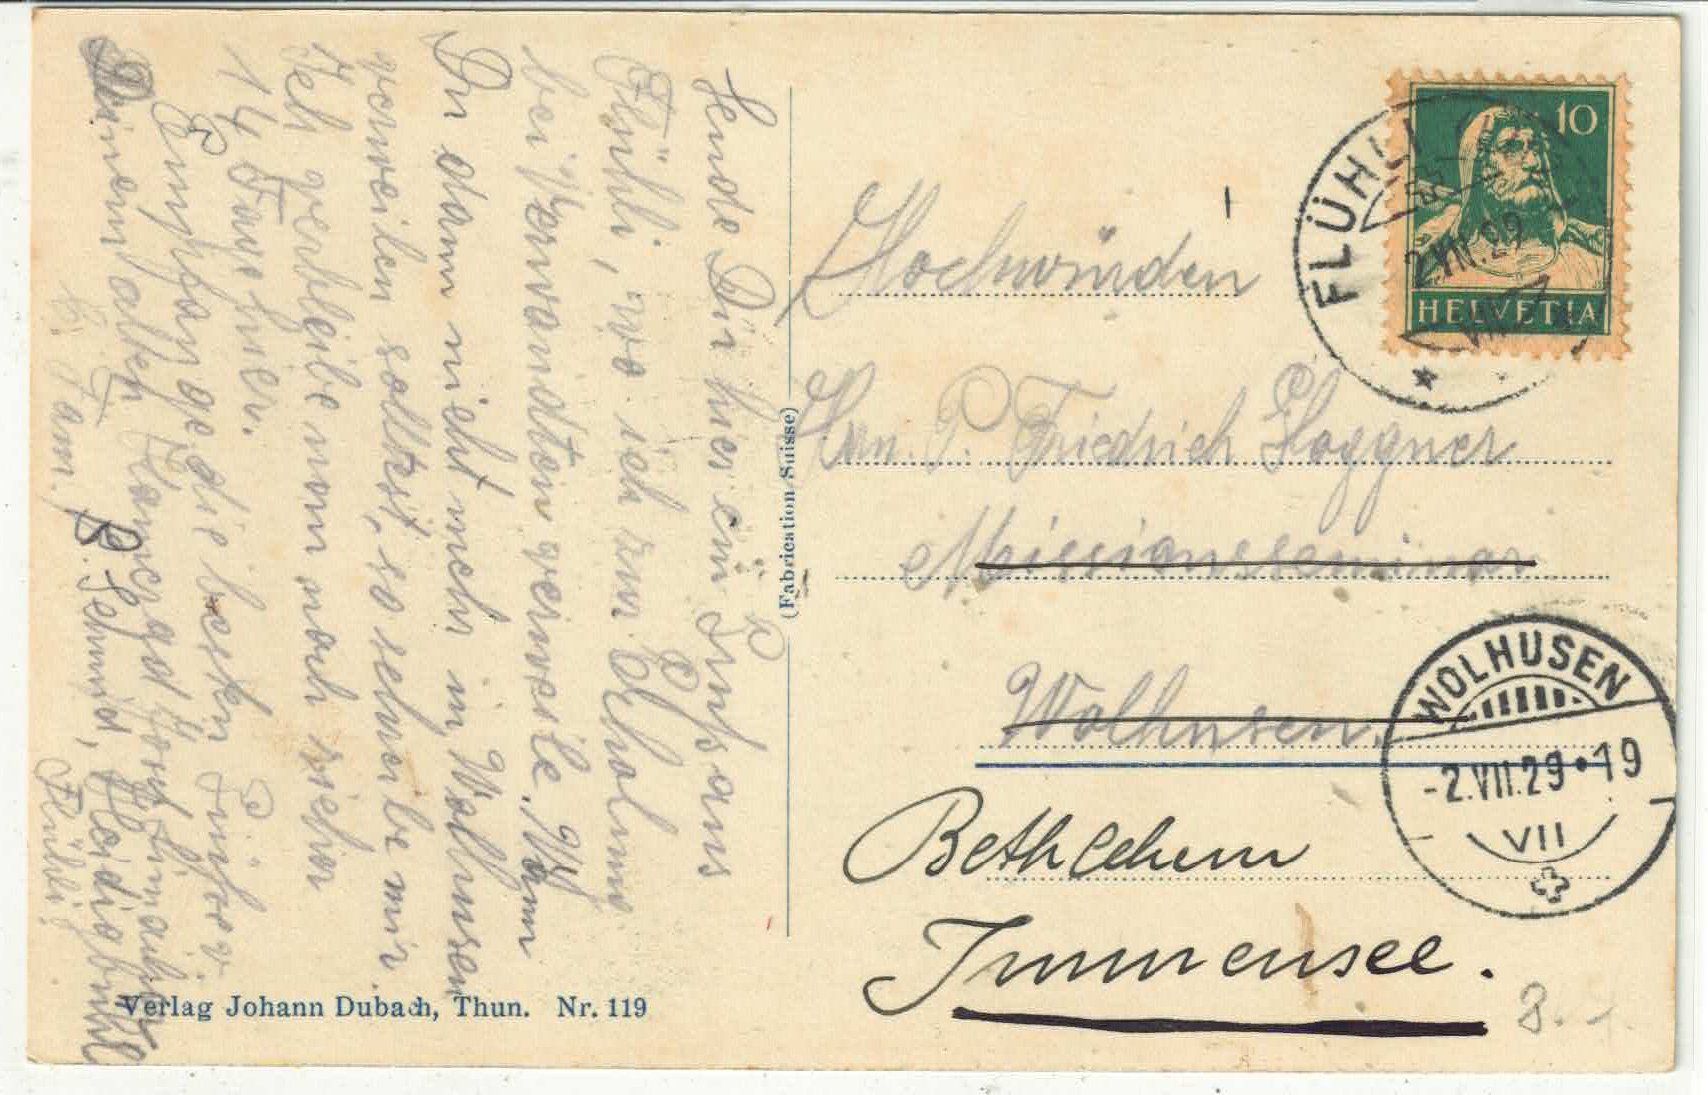 Sende Dir hier ein Gruß aus
Flühli, wo ich zur Erholung
bei Verwandten verweile. Wenn
Du dann nicht mehr in Wolhusen
verweilen solltest, so schreibe mir.
Ich verbleibe nun noch sicher
14 Tage hier.
Empfange die besten Grüße v.
Deinem alten Kamerad
z. Fam. B. Schmid, Heidigbühl
Flühli
Verlag Johann Dubach, Thun. Nr. 119
(Fabrication Suisse)
10
HELVETIA
FLÜHLI
2.VII.29
Hochwürden
Hrn. P. Friedrich Hoggner
Missionsseminar
Wolhusen.
Bethlehem
Immensee.
WOLHUSEN
-2.VII.29•19
VII
8.-